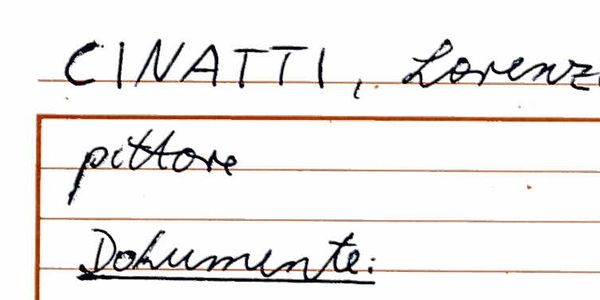 CINATTI, Lorenz
pittore
Dokumente: